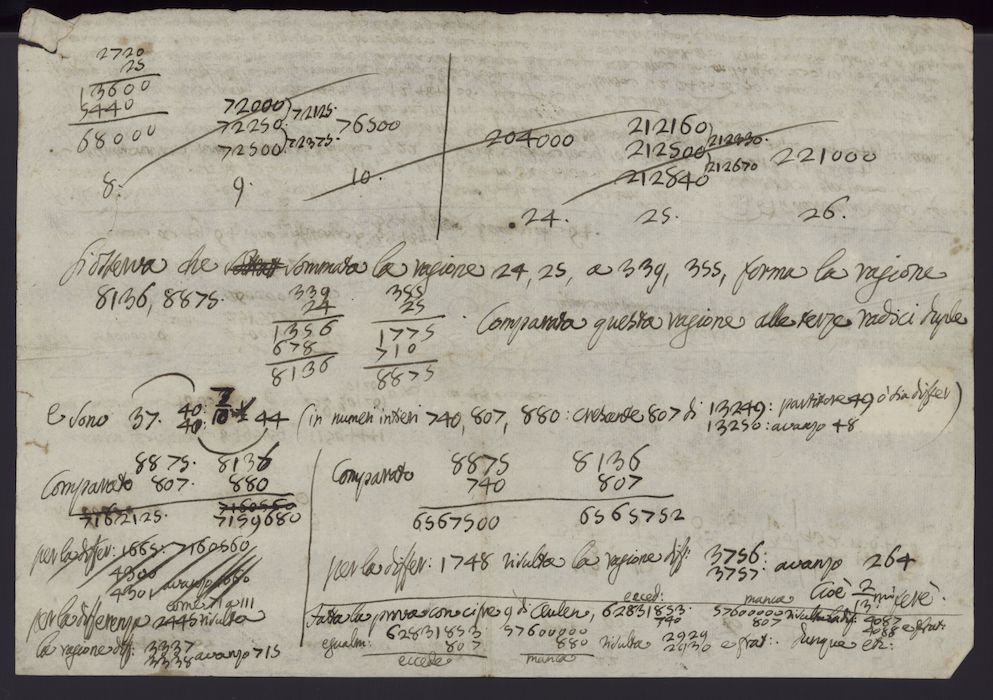 2720
25
13600
5440
68000
72000
72250
72500
72125.
72375.
76500
8. 9. 10.
204000
212160
212500
212840
212330.
212670
221000
.24. 25. 26.
che sommata la ragione 24, 25, a 339, 355, forma la ragione
8136, 8875.
339
24
1356
678
8136
355
25
1775
710
8875
Comparata questa ragione alle terze radici duple
e sono 37. 40: 7/10 44 (in numeri intieri 740, 807, 880: crescente 807 di 13249: partitore 49 differ)
40: 13250: avanzo 48
8875. 8136
Comparato 807. 880
7160560
7162125. 7159680
per la differ: 1665: 7160560
4300
4301 avanzo 1660
come 71 a 111
per la differenza 2445 risulta
la ragione di: 3337
3338 avanzo 715
Comparato 8875 8136
740 807
6567500 6565752
per la differ: 1748 risulta la ragione di: 3756: avanzo 264
3757:
Cioè 2/13
Fatta la prova con cifre 9 di Ceulen, 62831853. 57600000 risulta la di: 4087
ecced: 740 manca 807 4088 e frat:
egualm: 62831853 57600000 risulta 2929 e frat: . Dunque etc:
807 880 2930
eccede manca